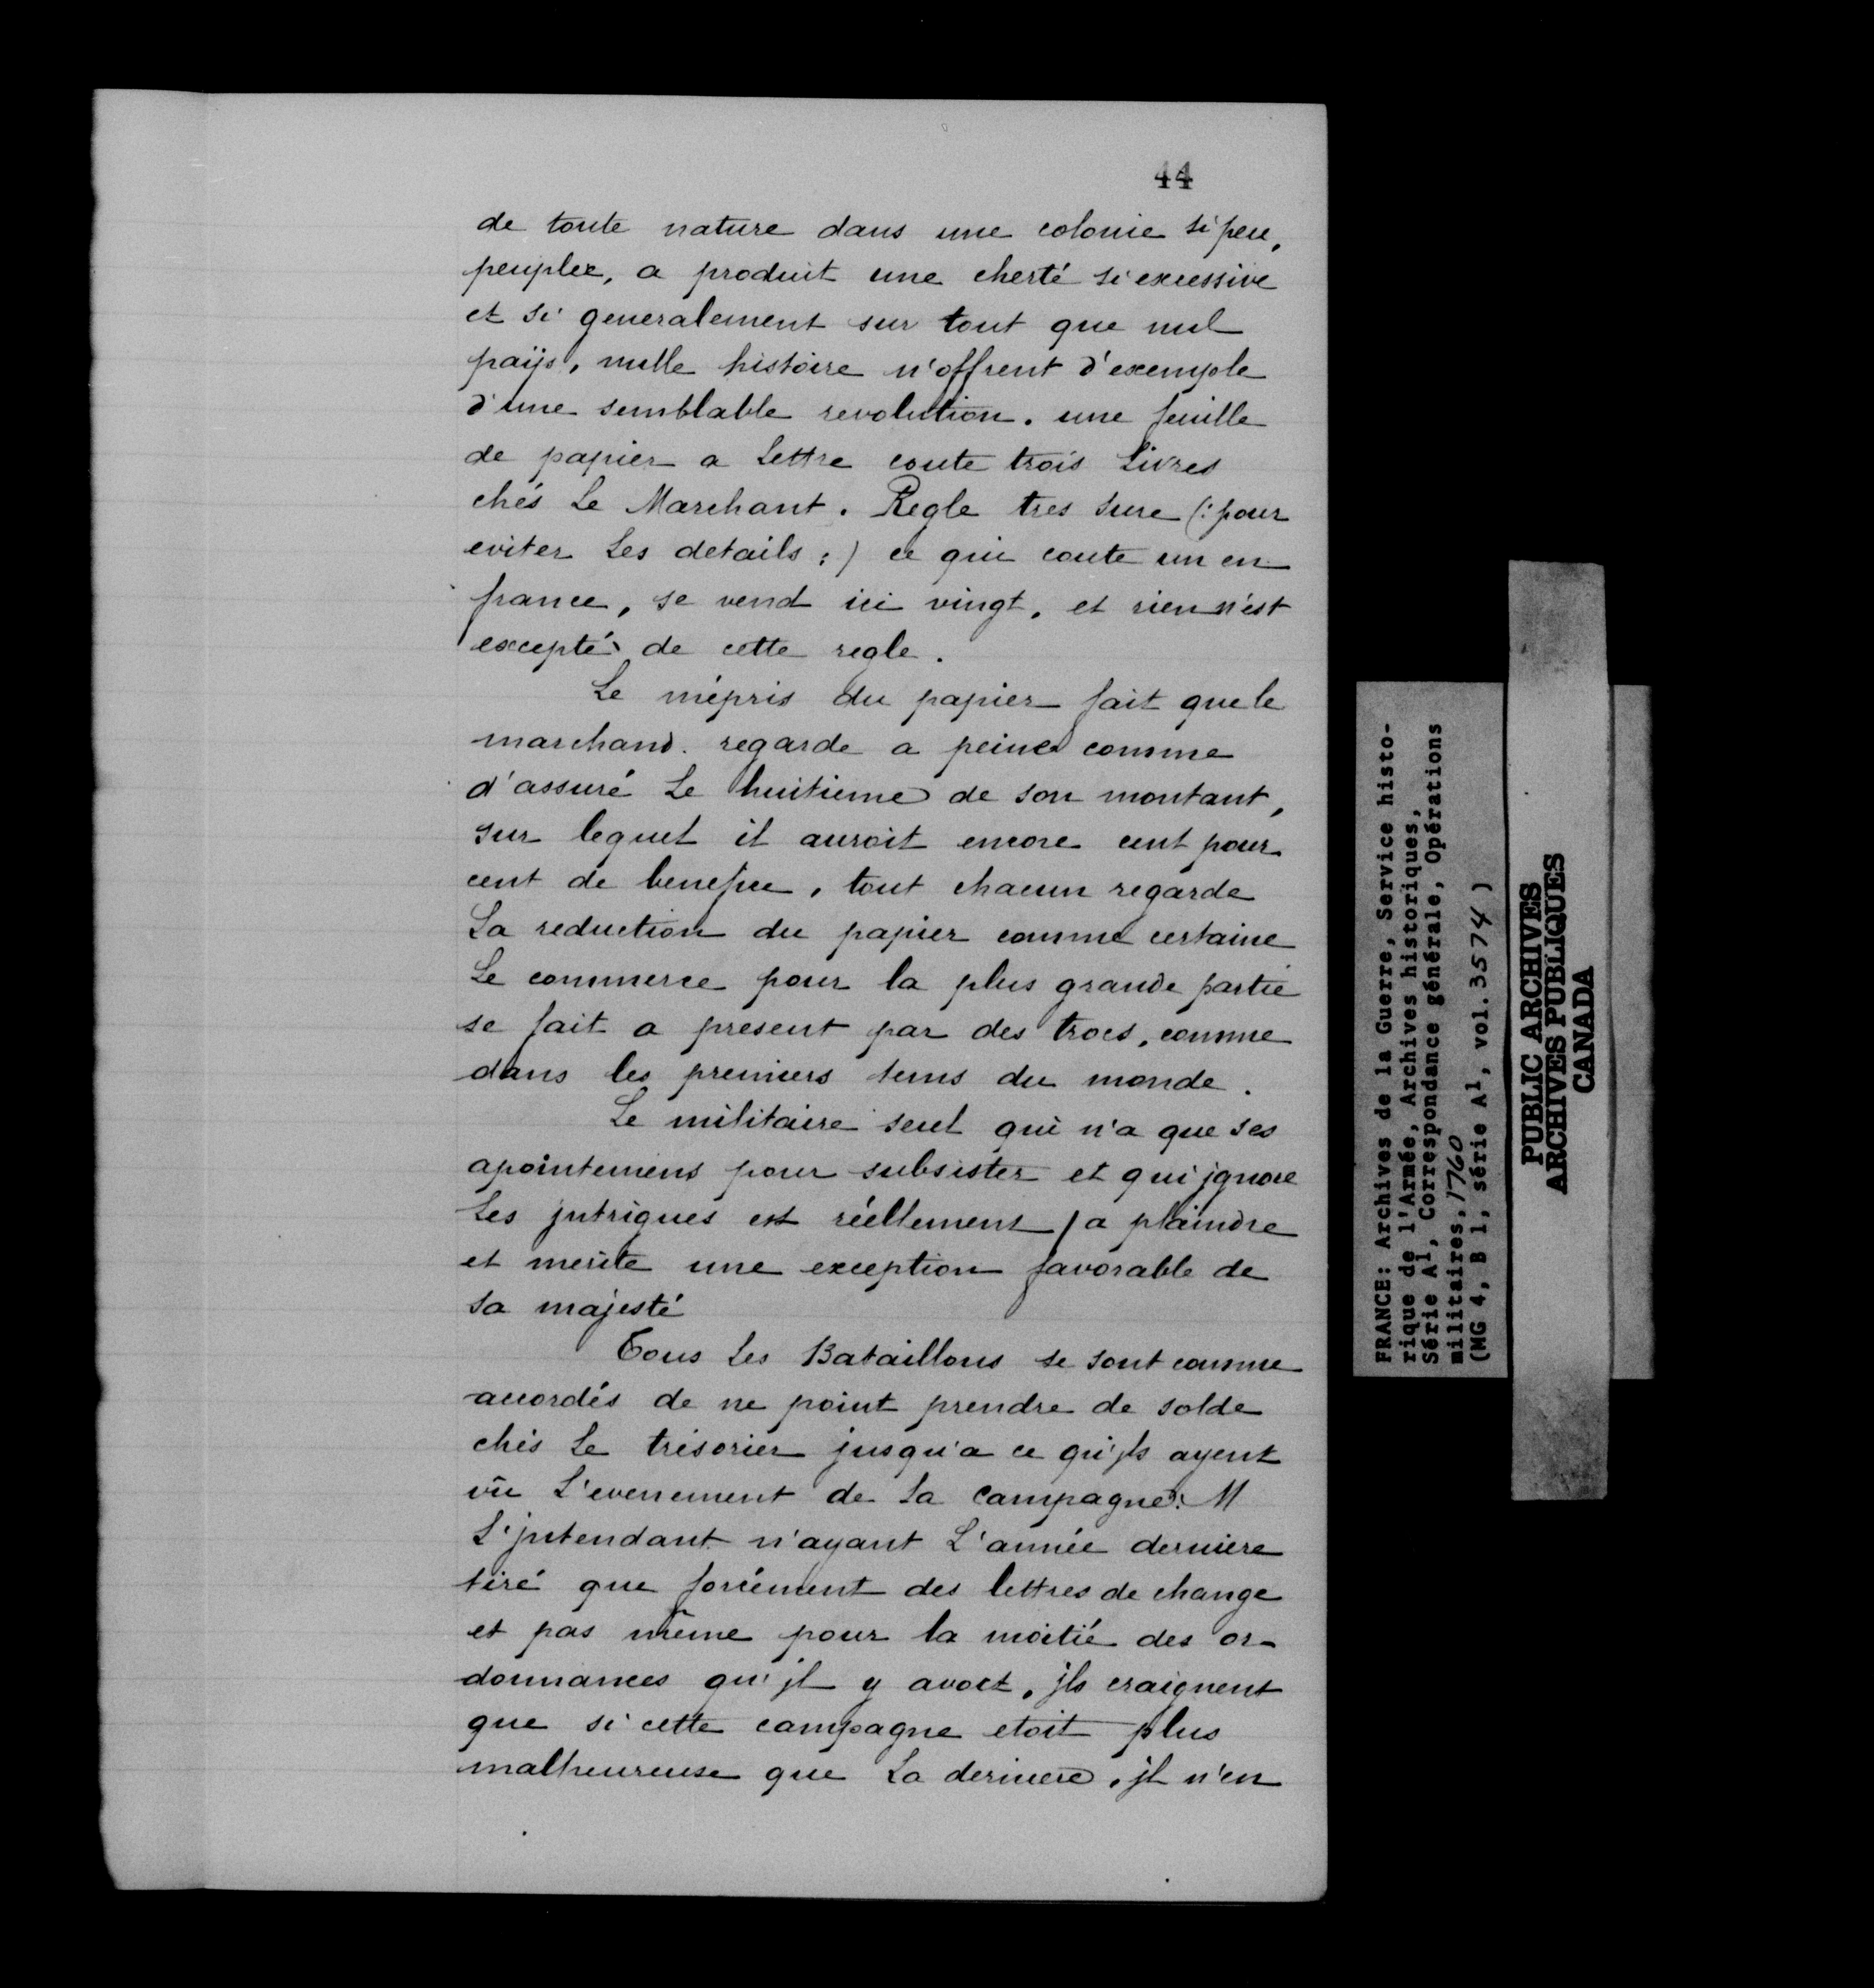 44
de toute nature dans une colonie si peu,
peuplee, a produit une cherté si excessive
et si generalement sur tout que nul
païjs, nulle histoire n'offrent d'exemple
d'une semblable revolution. une feuille
de papier a Lettre coute trois Livres
chés Le Marchant. Regle tres sure (: pour
eviter Les details :) ce qui coute un en
france, se vend ici vingt, et rien n'est
excepté de cette regle.
Le mépris du papier fait que le
marchand. regarde a peine comme
d'assuré Le huitieme de son montant,
sur lequel il auroit encore cent pour
cent de benefice, tout chacun regarde
La reduction du papier comme certaine
Le commerce pour la plus grande partie
se fait a present par des trocs, comme
dans les premiers tems du monde.
Le militaire seul qui n'a que ses
apointemens pour subsister et qui jgnore
Les jntrigues est réellement a plaindre
et merite une exception favorable de
sa majesté
Tous Les Bataillons se sont comme
accordés de ne point prendre de solde
chés Le trésorier jusqu'a ce qu'jls ayent
vû L'evenement de La campagne: M
L'jntendant n'ayant L'année derniere
tiré que forcément des lettres de change
et pas même pour la moitié des or-
donnances qu'jl y avoit, jls craignent
que si cette campagne etoit plus
malheureuse que La derniere, jl n'en
FRANCE: Archives de la Guerre, Service histo-
rique de l'Armée, Archives historiques,
Série A1, Correspondance générale, Opérations
militaires, 1760
(MG 4, B 1, série A1, vol. 3574)
PUBLIC ARCHIVES
ARCHIVES PUBLIQUES
CANADA